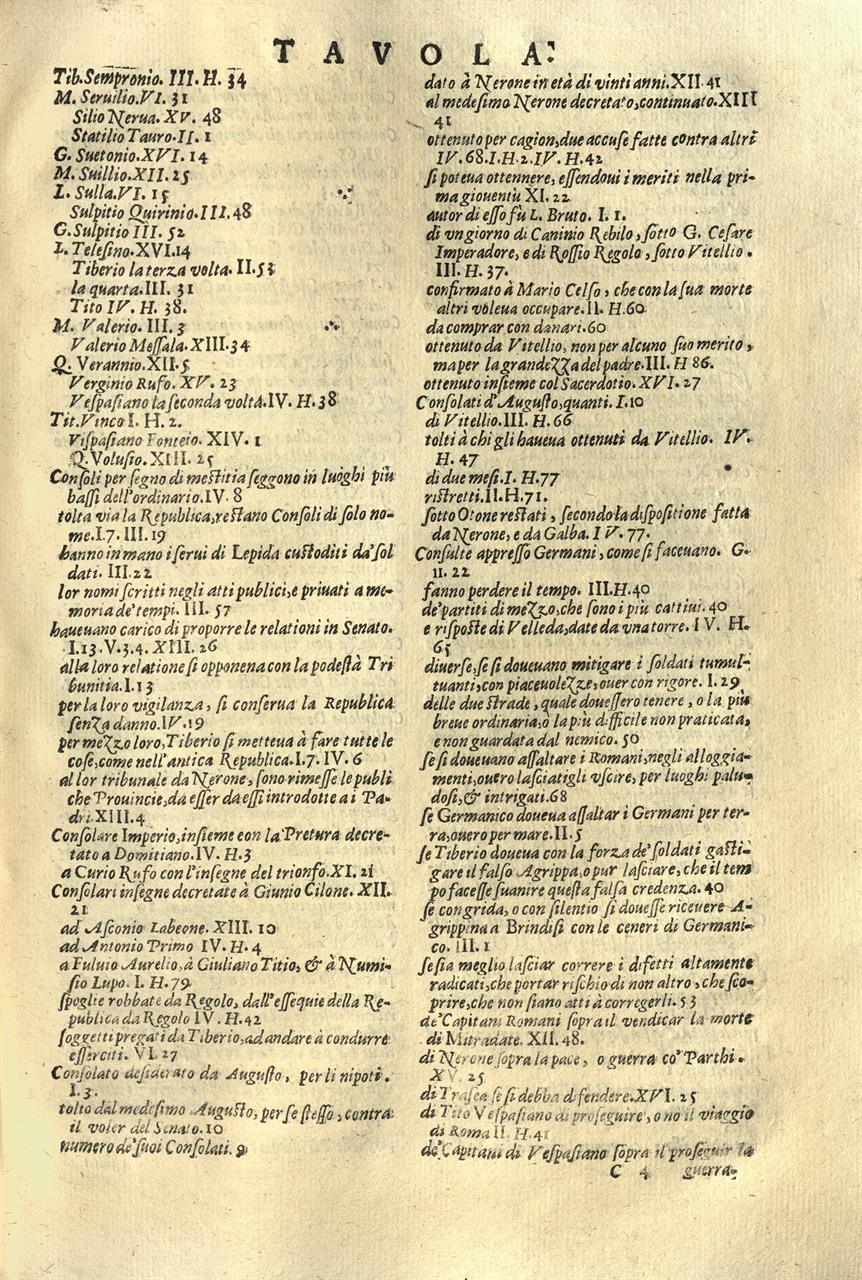 TAVOLA:
Tib. Sempronio. III. H. 34
M. Seruilio. VI. 31
Silio Nerua. XV. 48
Statilio Tauro. II. 1
G. Suetonio. XVI. 14
M. Suillio. XII. 25
L. Sulla. VI. 15
Sulpitio Quirinio. III. 48
G. Sulpitio III. 52
L. Telesino. XVI. 14
Tiberio la terza volta. II. 53
la quarta. III. 31
Tito IV. H. 38.
M. Valerio. III. 3
Valerio Messala. XIII. 34
Q. Verannio. XII. 5
Verginio Rufo. XV. 23
Vespasiano la seconda voltà. IV. H. 38
Tit. Vinco I. H. 2.
Vispasiano Fonteio. XIV. 1
Q. Volusio. XIII. 25
Consoli per segno di mestitia seggono in luoghi più
bassi dell'ordinario. IV. 8
tolta via la Republica, restano Consoli di solo no-
me. I. 7. III. 19
hanno in mano i serui di Lepida custoditi da'sol
dati. III. 22
lor nomi scritti negli atti publici, e priuati a me-
moria de'tempi. III. 57
haueuano carico di proporre le relationi in Senato.
I. 13. V. 3. 4. XIII. 26
alla loro relatione si opponena con la podestà Tri
bunitia. I. 13
per la loro vigilanza, si conserua la Republica
senza danno. IV. 19
per mezzo loro, Tiberio si metteua à fare tutte le
cose, come nell'antica Republica. I. 7. IV. 6
al lor tribunale da Nerone, sono rimesse le publi
che Prouincie, da esser da essi introdotte a i Pa-
dri. XIII. 4
Consolare Imperio, insieme con la Pretura decre-
tato a Domitiano. IV. H. 3
a Curio Rufo con l'insegne del trionfo. XI. 21
Consolari insegne decretate à Giunio Cilone. XII.
21
ad Asconio Labeone. XIII. 10
ad Antonio Primo IV. H. 4
a Fuluio Aurelio, à Giuliano Titio, & à Numi-
sio Lupo. I. H. 79
spoglie robbate da Regolo, dall'essequie della Re-
publica da Regolo IV. H. 42
soggetti pregati da Tiberio, ad andare à condurre
esserciti. VI. 27
Consolato desiderato da Augusto, per li nipoti.
I. 3.
tolto dal medesimo Augusto, per se stesso, contra
il voler del Senato. 10
numero de'suoi Consolati. 9
dato à Nerone in età di vinti anni. XII. 41
al medesimo Nerone decretato, continuato. XIII
41
ottenuto per cagion, due accuse fatte contra altri
IV. 68. I. H. 2. IV. H. 42
si poteua ottennere, essendoui i meriti nella pri-
ma giouentù XI. 22
autor di esso fù L. Bruto. I. 1.
di vn giorno di Caninio Rebilo, sotto G. Cesare
Imperadore, e di Rossio Regolo, sotto Vitellio.
III. H. 37.
confirmato à Mario Celso, che con la sua morte
altri voleua occupare. II. H. 60
da comprar con danari. 60
ottenuto da Vitellio, non per alcuno suo merito,
ma per la grandezza del padre. III. H 86.
ottenuto insieme col Sacerdotio. XVI. 27
Consolati d'Augusto, quanti. I. 10
di Vitellio. III. H. 66
tolti à chi gli haueua ottenuti da Vitellio. IV.
H. 47
di due mesi. I. H. 77
ristretti. II. H. 71.
sotto Otone restati, secondo la dispositione fatta
da Nerone, e da Galba. IV. 77.
Consulte appresso Germani, come si faceuano. G.
11. 22
fanno perdere il tempo. III. H. 40
de'partiti di mezzo, che sono i più cattiui. 40
e risposte di Velleda, date da vna torre. IV. H.
65
diuerse, se si doueuano mitigare i soldati tumul-
tuanti, con piaceuolezze, ouer con rigore. I. 29
delle due strade, quale douessero tenere, o la più
breue ordinaria, ò la più difficile non praticata,
e non guardata dal nemico. 50
se si doueuano assaltare i Romani, negli alloggia-
menti, ouero lasciatigli vscire, per luoghi palu-
dosi, & intrigati. 68
se Germanico doueua assaltar i Germani per ter-
ra, ouero per mare. II. 5
se Tiberio doueua con la forza de'soldati gasti-
gare il falso Agrippa, o pur lasciare, che il tem
po facesse suanire questa falsa credenza. 40
se con grida, o con silentio si douesse riceuere A-
grippina a Brindisi con le ceneri di Germani-
co. III. 1
se sia meglio lasciar correre i difetti altamente
radicati, che portar rischio di non altro, che sco-
prire, che non siano atti à corregerli. 53
de'Capitani Romani sopra il vendicar la morte
di Mitradate. XII. 48.
di Nerone sopra la pace, o guerra co' Parthi.
XV. 25
di Trasea se si debba difendere. XVI. 25
di Tito Vespasiano di proseguire, o no il viaggio
di Roma II. H. 41
de'Capitani di Vespasiano sopra il proseguir la
C 4 guerra